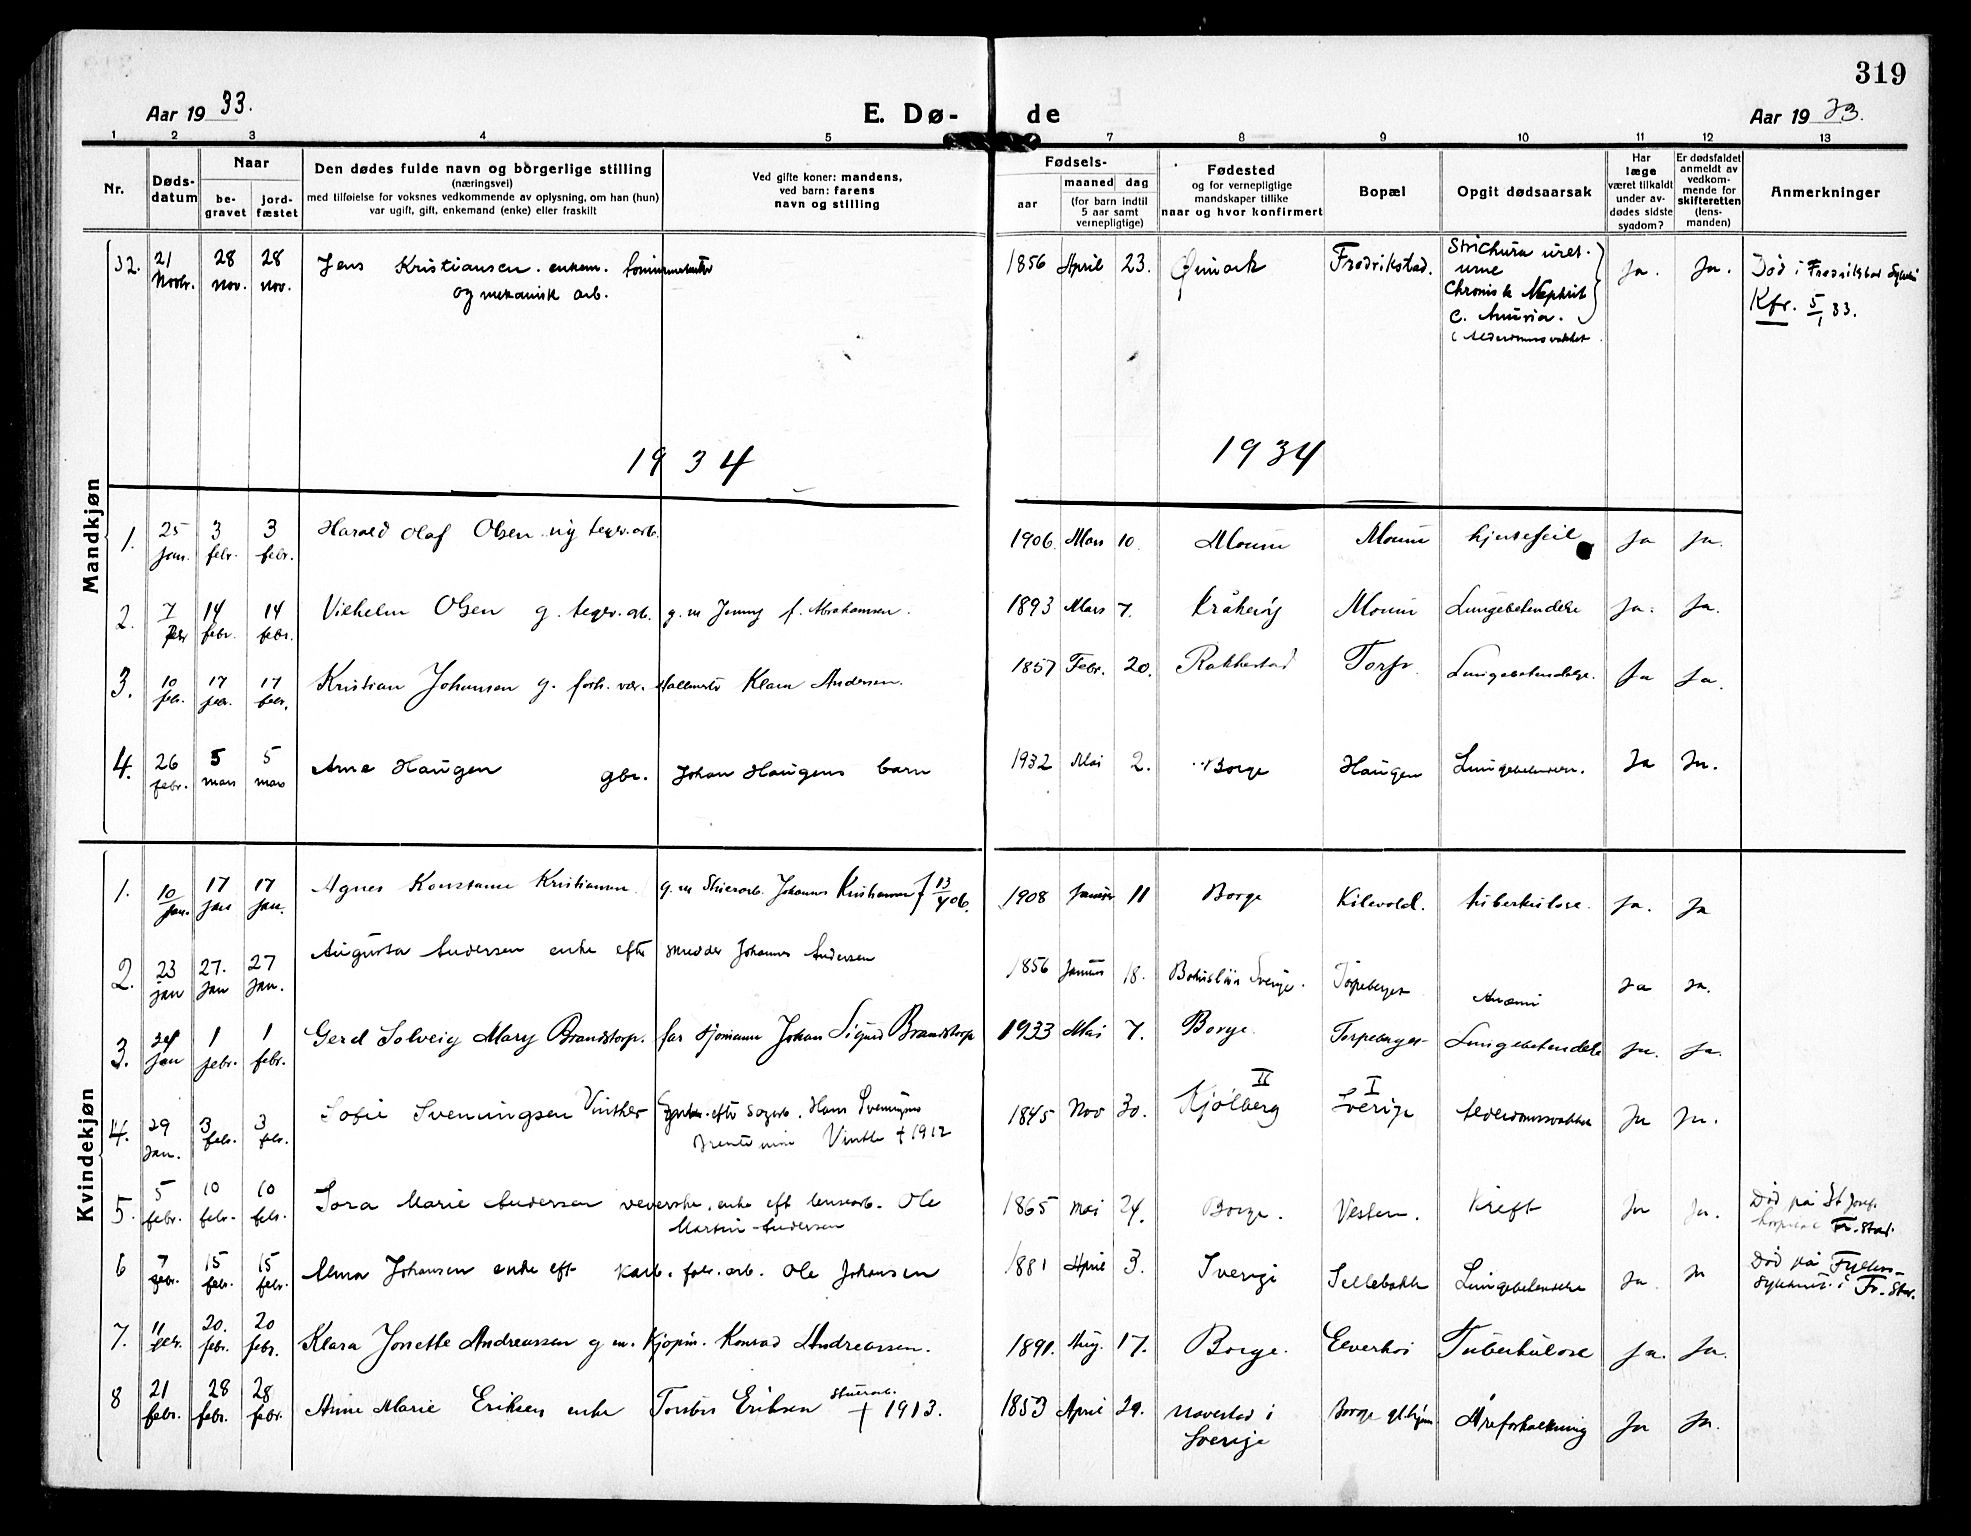 319
Aar 19 33.
E. Dø-
de
Aar 19 33.
1 2 3 4 5 7 8 9 10 11 12 13
Nr.
Døds-
datum
Naar
be-
gravet
jord-
fæstet
Den dødes fulde navn og borgerlige stilling
(næringsvei)
med tilføielse for voksnes vedkommende av oplysning, om han (hun)
var ugift, gift, enkemand (enke) eller fraskilt
Ved gifte koner: mandens,
ved barn: farens
navn og stilling
Fødsels-
aar
maaned dag
(for barn indtil
5 aar samt
vernepligtige)
Fødested
og for vernepligtige
mandskaper tillike
naar og hvor konfirmert
Bopæl
Opgit dødsaarsak
Har
læge
været tilkaldt
under av-
dødes sidste
sygdom?
Er dødsfaldet
anmeldt av
vedkom-
mende for
skifteretten
(lens-
manden)
Anmerkninger
Mandkjøn
32. 21 Novbr. 28 nov. 28 nov. Jens Kristiansen. enkem.
og mekanisk arb.
1856 April 23. Ømark Fredrikstad.
Chronisk Nephrit
c. Anuria.
Ja. Ja. Død i Fredrikstad
Kfr. 5/1 33.
1934 1934
1. 25 jan. 3 febr. 3 febr. Harald Olaf Olsen ug teglv.arb. 1906 Mars 10. Moum Moum hjertefeil Ja Ja.
2. 7 febr 14 febr. 14 febr. Vilhelm Olsen g. teglv.arb. g. m Jenny f. Abrahamsen. 1893 Mars 7. Kråkerøy Moum Lungebetendelse Ja. Ja.
3. 10 febr. 17 febr. 17 febr. Kristian Johansen g. forh. vær. Klara Andersen. 1857 Febr. 20. Rakkestad Torp. Lungebetendelse. Ja Ja.
4. 26 febr. 5 mars 5 mars Arne Haugen gbr. Johan Haugens barn 1932 Mai 2. Borge Haugen Lungebetendelse. Ja Ja.
Kvindekjøn
1. 10 Jan. 17 Jan 17 Jan. Agnes Konstanse Kristiansen. g. m Johannes Kristiansen f 13/4 06. 1908 Januar 11 Borge Kilevold. tuberkulose. Ja. Ja
2. 23 jan 27. Jan 27 Jan. Augusta Andersen enke efter skredder Johannes Andersen 1856 Januar 18. Bohuslän Sverige. Torpeberget Anæmi Ja Ja.
3. Jan 1 febr. 1 febr. Gerd Solveig Mary Brandstorp. far sjømann Johan Sigurd Brandstorp 1933 Mai 7. Borge. Torpeberget Lungebetendelse Ja. Ja.
4. 29 Jan. 3 febr. 3 febr. Sofie Svenningsen Vinther Enke efter Hans Svenningsen
Vinther † 1912
1845 Nov 30. II Kjølberg I Sverige Alderdomssvakhet Ja Ja.
5. 5 febr. 10 febr. 10 febr. Tora Marie Andersen veverske. enke eft Ole
Martin Andersen
1865 Mai 24. Borge. Vesten. Kreft Ja Ja. Død på St Josef
hospital Fr. Stad.
6 7 febr. 15 febr. 15 febr. Alma Johansen enke eft Karb. fabr. arb. Ole Johansen 1881 April 3. Sverige Sellebakk Lungebetendelse Ja. Ja Død på Fylkes-
sykehus. i Fr. Stad.
7. 11 febr. 20. febr. 20 febr. Klara Jonette Andreassen g m. Kjøpm. Konrad Andreassen. 1891. Aug. 17. Borge. Tuberkulose Ja. Ja.
8 21 febr. 28 febr. 28 febr. Anne Marie Eriksen enke Eriksen † 1913. 1853 April 29. Navestad i
Sverige
Borge Åreforkalkning Ja Ja.